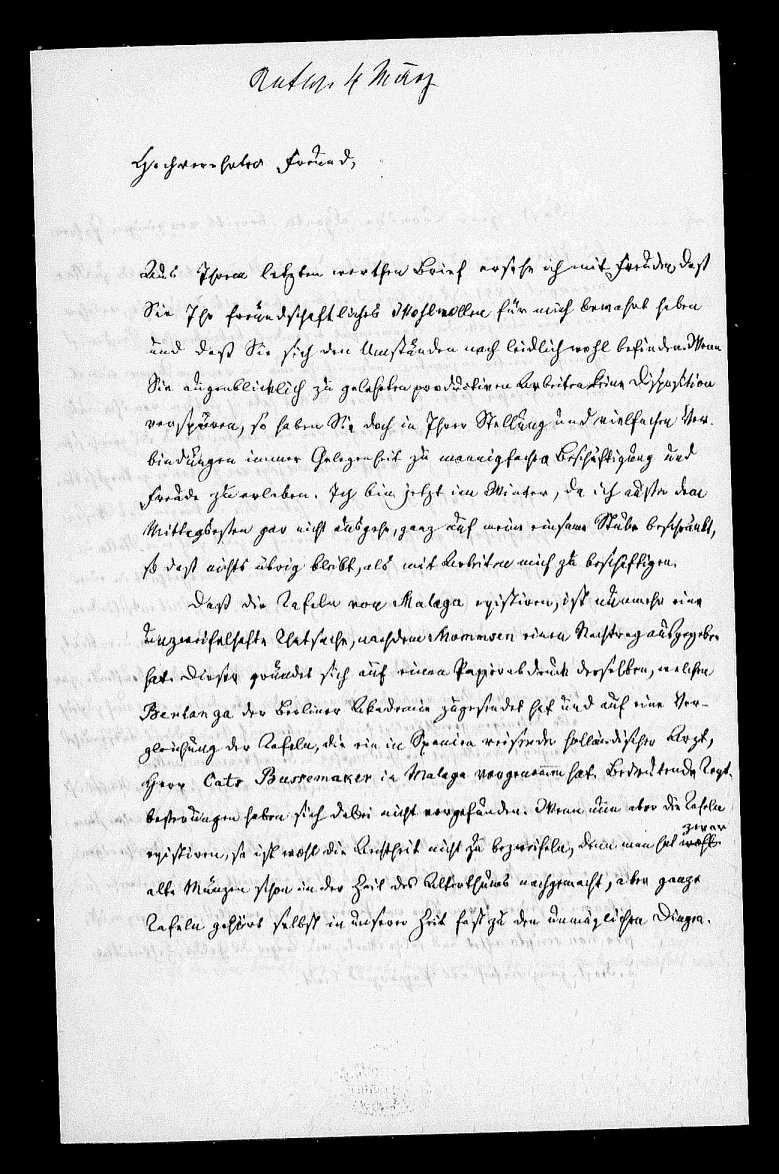 Antw. 4 März
Hochverehrter Freund,
Aus Ihrem letzten werthen Brief ersehe ich mit Freuden, daß
Sie Ihr freundschaftliches Wohlwollen für mich bewahrt haben
und daß Sie sich den Umständen nach leidlich wohl befinden. Wenn
Sie augenblicklich zu gelehrten productiven Arbeiten keine Disposition
verspüren, so haben Sie doch in Ihrer Stellung und vielfachen Ver-
bindungen immer Gelegenheit zu mannigfacher Beschäftigung und
Freude zu erleben. Ich bin jetzt im Winter, da ich außer dem
Mittagsessen gar nicht ausgehe, ganz auf meine einsame Stube beschränkt,
so daß nichts übrig bleibt, als mit Arbeiten mich zu beschäftigen.
Daß die Tafeln von Malaga existiren, ist nunmehr eine
unzweifelhafte Thatsache, nachdem Mommsen einen Nachtrag ausgegeben
hat. Dieser gründet sich auf einen Papierabdruck derselben, welchen
Berlanga der Berliner Akademie zugesendet hat und auf eine Ver-
gleichung der Tafeln, die ein in Spanien reisender holländischer Arzt,
Herr Cats Bussemaker in Malaga vorgenommen hat. Bedeutende Text-
besserungen haben sich dabei nicht vorgefunden. Wenn nun aber die Tafeln
existiren, so ist wohl die Aechtheit nicht zu bezweifeln, denn man hat zwar
alte Münzen schon in der Zeit des Alterthums nachgemacht, aber ganze
Tafeln gehört selbst in unserer Zeit fast zu den unmöglichen Dingen.